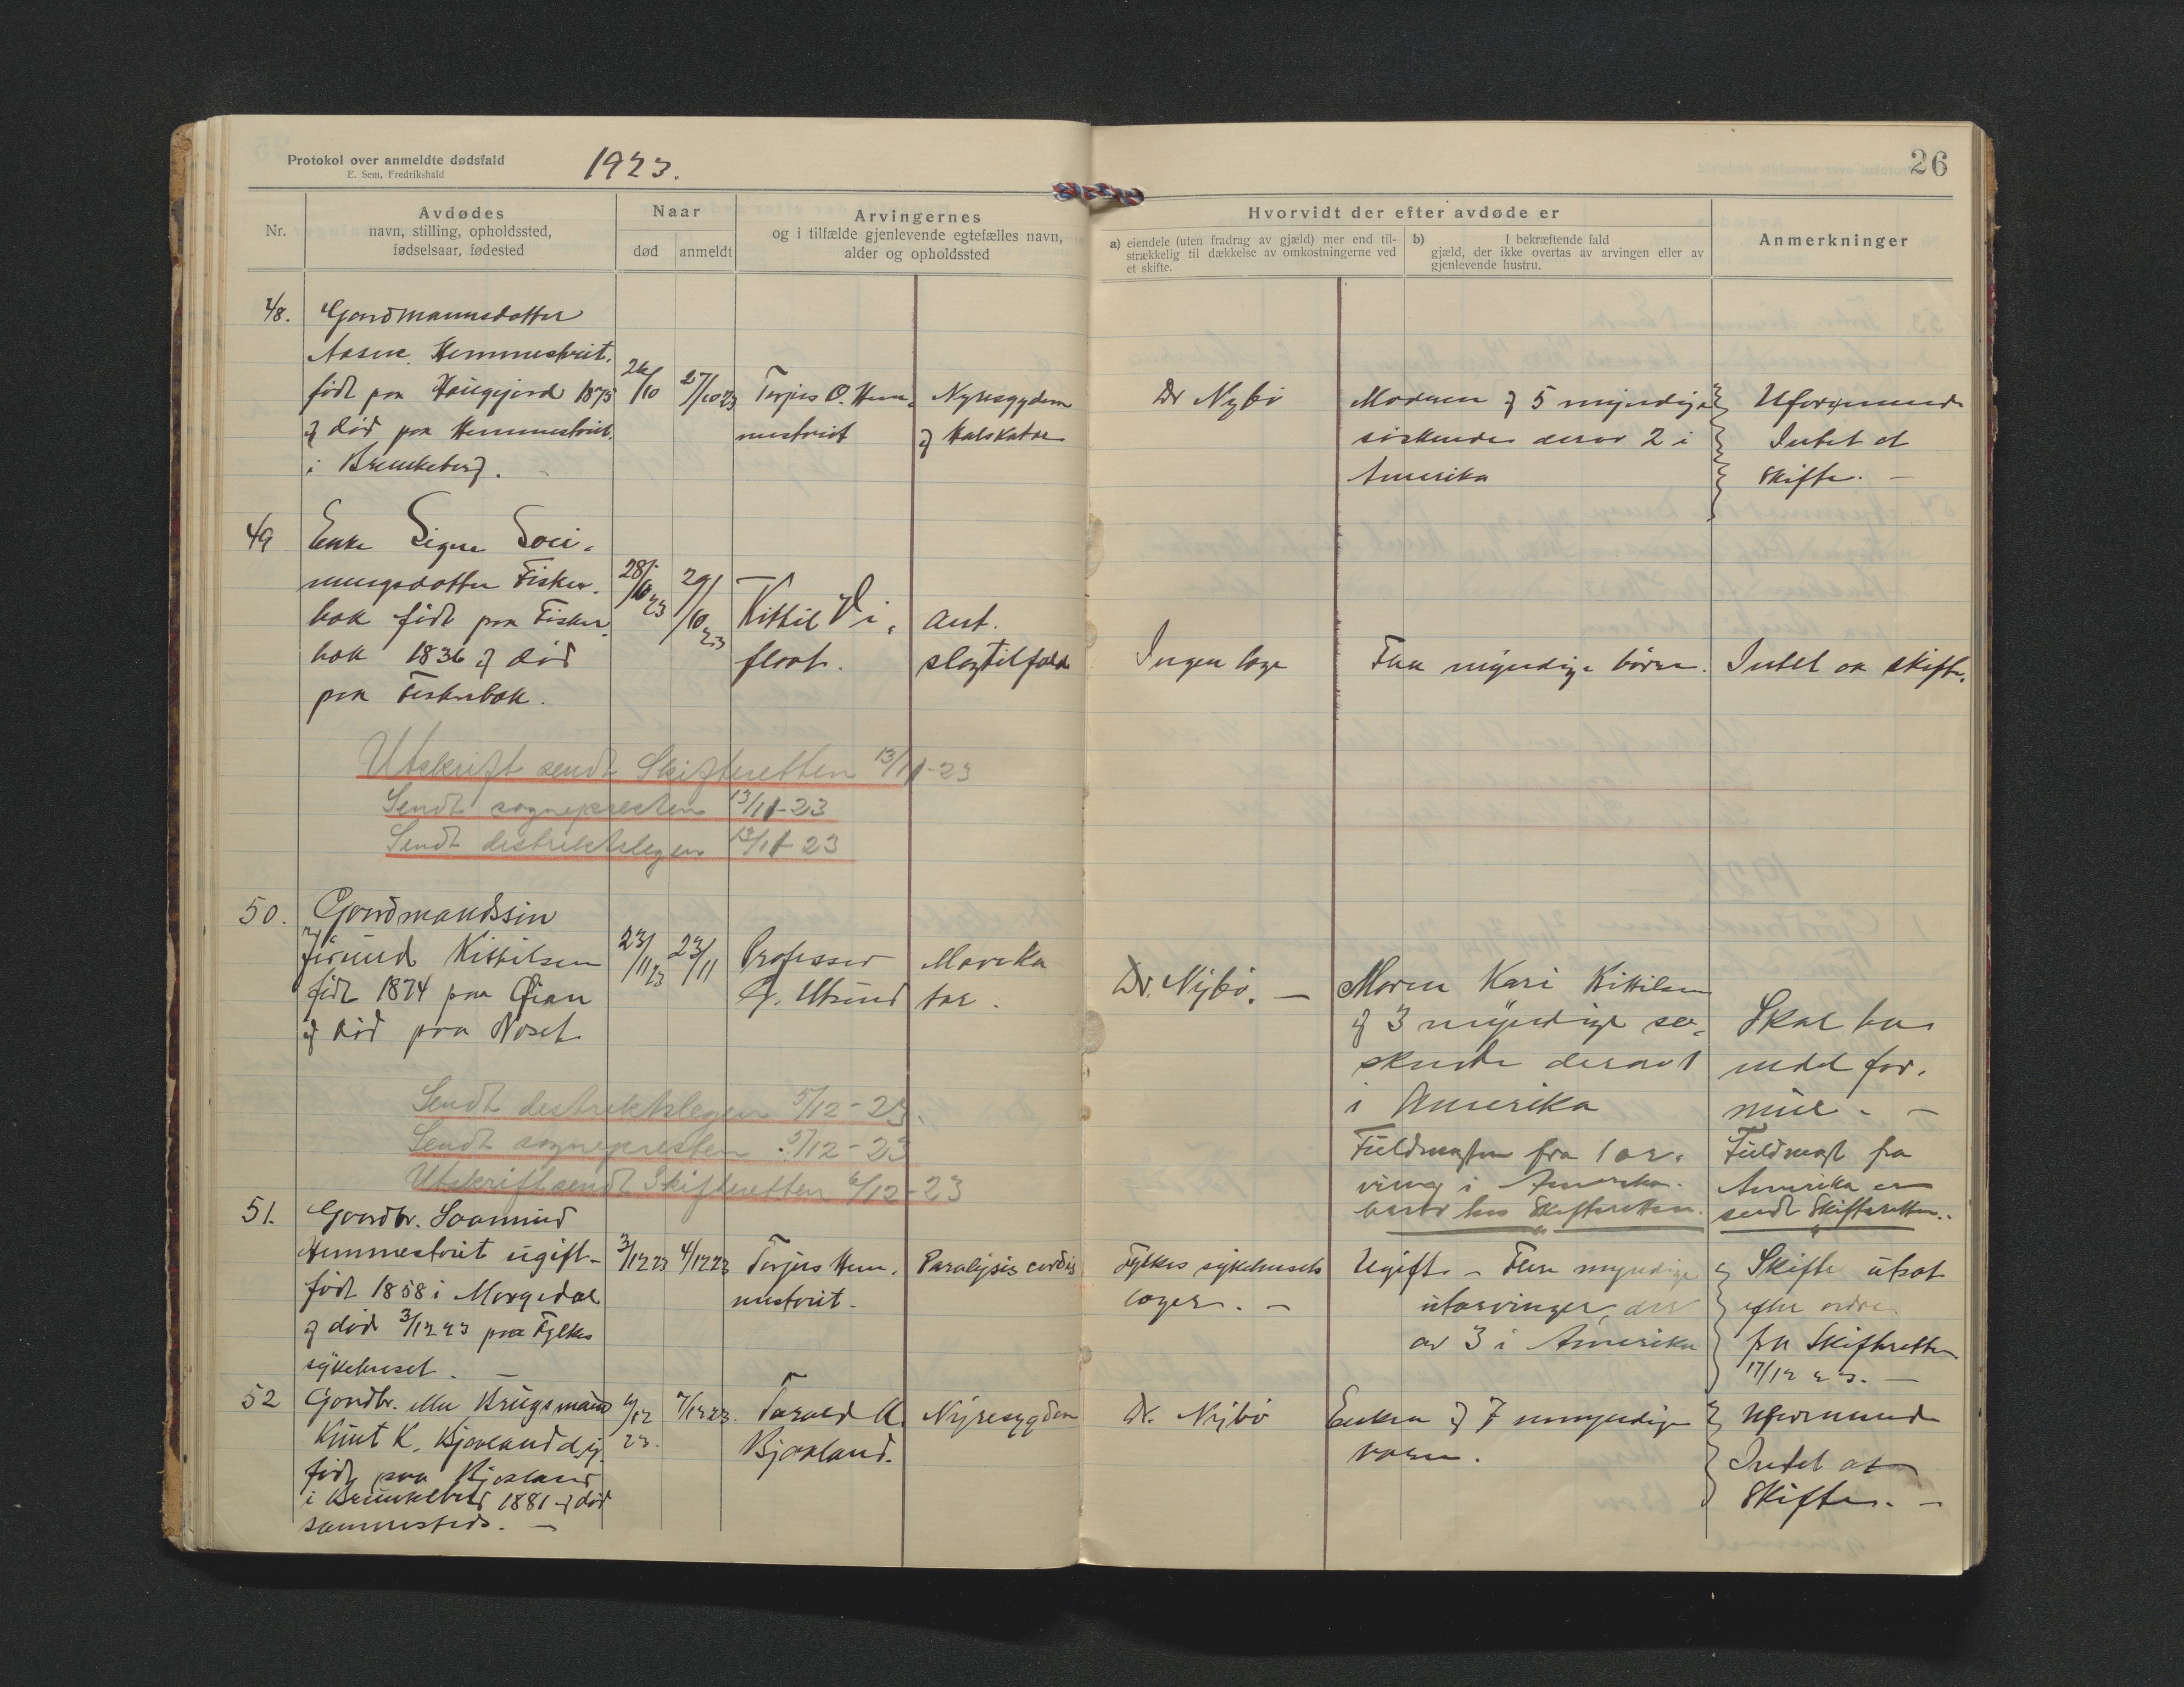 Protokol over anmeldte dødsfald
E. Sem, Fredrikshald
1923.
26
Nr.
Avdødes
navn, stilling, opholdssted,
fødselsaar, fødested
Naar
død
anmeldt
Arvingernes
og i tilfælde gjenlevende egtefælles navn,
alder og opholdssted
Hvorvidt der efter avdøde er
a) eiendele (uten fradrag av gjæld) mer end til-
strækkelig til dækkelse av omkostningerne ved
et skifte.
b) I bekræftende fald
gjæld, der ikke overtas av arvingen eller av
gjenlevende hustru.
Anmerkninger
48.
Gardmannsdotter
Aasne Hemmestveit
født paa Haugejord 1875
og død paa Hemmestveit
i Brunkeberg.
26/10
27/10 23
Torjus O. Hem-
mestveit
Nyresygdom
og Halskatar
Dr Nybø
Moderen og 5 myndige
søskende derav 2 i
Amerika
Uformuende
Intet at
skifte. –
49
Enke Signe Svei-
nungsdotter Fisker-
bak født paa Fisker-
bak 1836 og død
paa Fiskerbak.
28/10 23
29/10 23
Kittil
flaat.
Ant.
slagtilfæld
Ingen læge
Flere myndige børn.
Intet aa skifte.
Utskrift sendt Skifteretten 13/11-23
Sendt sognepresten 13/11-23
Sendt distriktslegen 13/11-23
50.
Gardmandssøn
Jørund Kittilsen
født 1874 paa Øian
og død paa Noset
23/11 23
23/11
Professer
G. Utsund
Maveka
tar.
Dr. Nybø. –
Moren Kari Kittilsen
og 3 myndige sø-
skende derav 1
i Amerika
Fuldmagten fra 1 ar-
ving i Amerika
hos Skifteretten.
Skal ha
endel for-
mue. –
Fuldmagt fra
Amerika er
sendt Skifteretten.
Sendt distriktslegen 5/12-23.
Sendt sognepresten 5/12-23
Utskrift sendt Skifteretten 6/12-23
51.
Gardbr. Saamund
Hemmestveit ugift –
født 1858 i Morgedal
og død 3/12 23 paa Fylkes
sykehuset.
3/12 23
4/12 23
Torjus Hem-
mestveit –
Paralysis cordis
Fylkes sykehusets
læger. –
Ugift – Flere myndige
utarvinger, der
av 3 i Amerika
Skifte utsat
efter ordre
fra Skifteretten
17/12 23. –
52
Gardbr. eller Brugsmand
Knut K. Bjaaland d.y.
født paa Bjaaland
i Brunkeberg 1881 og død
sammesteds. –
6/12
23.
7/12 23.
Tarald K.
Bjaaland.
Nyresygdom
Dr. Nybø
Enken og 7 umyndige
barn.
Uformuende
Intet at
Skifte. –